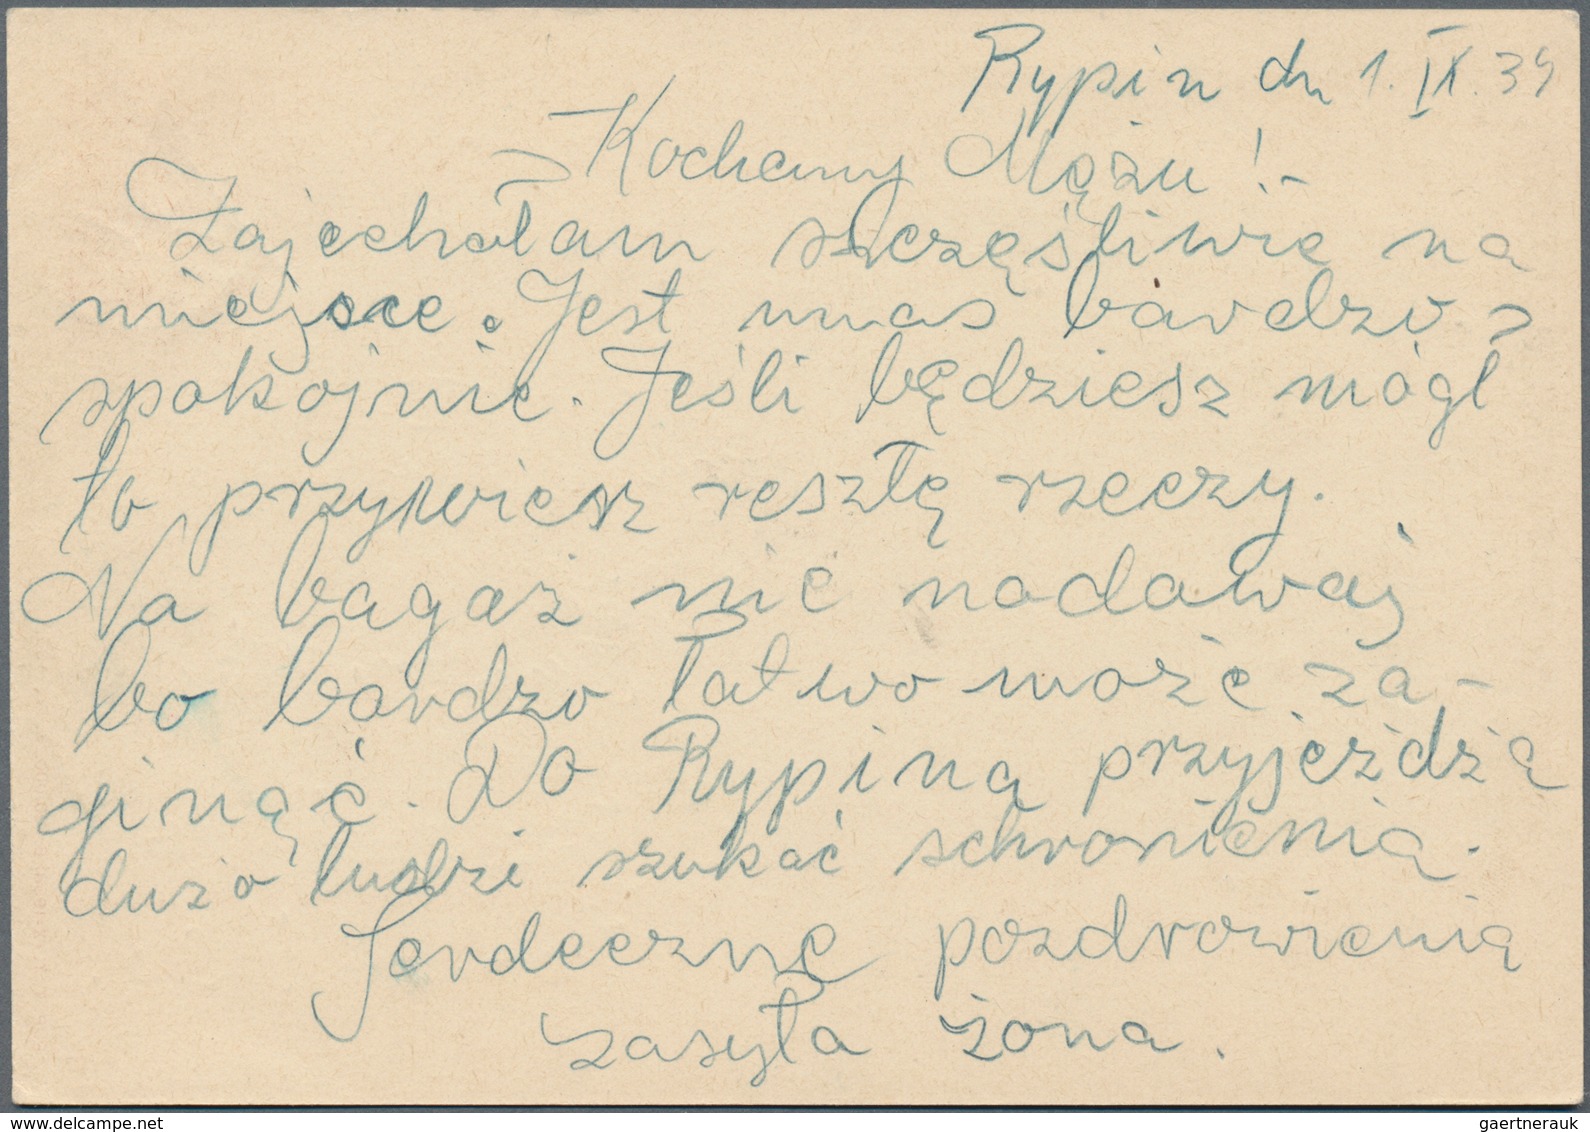 Rypin dn 1. IX. 39
Kochany Mężu!-
Zajechałam szczęśliwie na
miejsce. Jest unas bardzo
spokojnie. Jeśli będziesz mógł
to przywiesz resztę rzeczy.
Na bagaż nic nadawaj
bo bardzo łatwo może za-
ginąć. Do Rypina przyjeżdża
dużo ludzi szukać schronienia.
Serdeczne pozdrowienia
zasyła żona.
gaertnerauk
www.delcampe.net